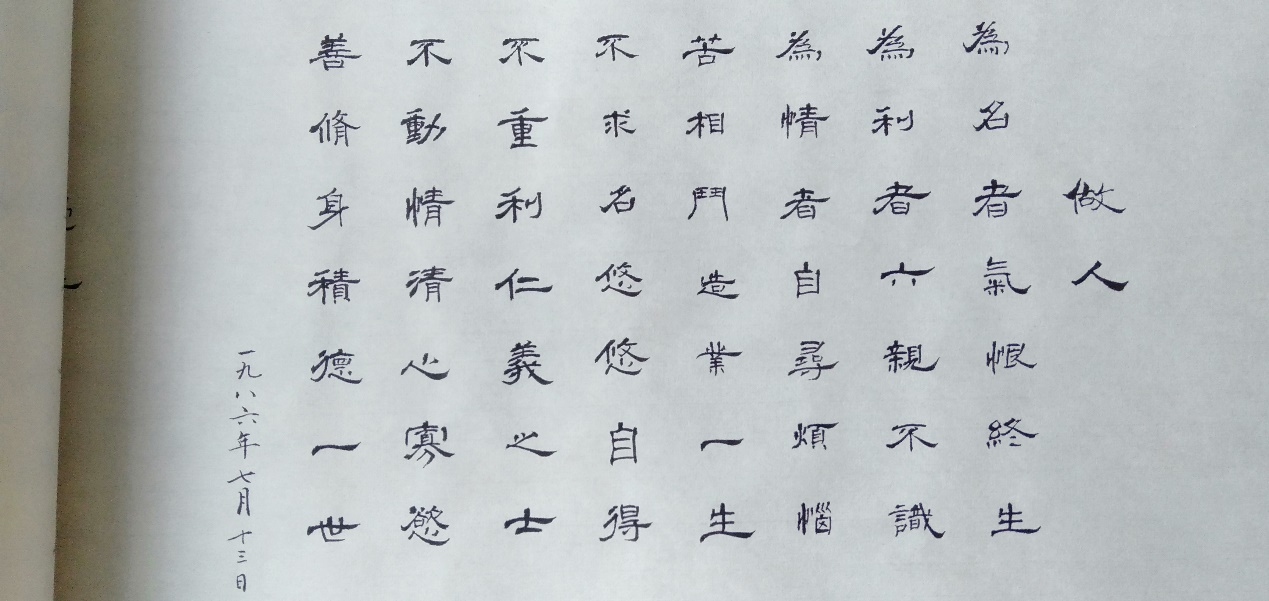 做人
為名者氣恨終生
為利者六親不識
為情者自尋煩惱
苦相鬥造業一生
不求名悠悠自得
不重利仁義之士
不動情清心寡慾
善脩身積德一世
一九八六年七月十三日